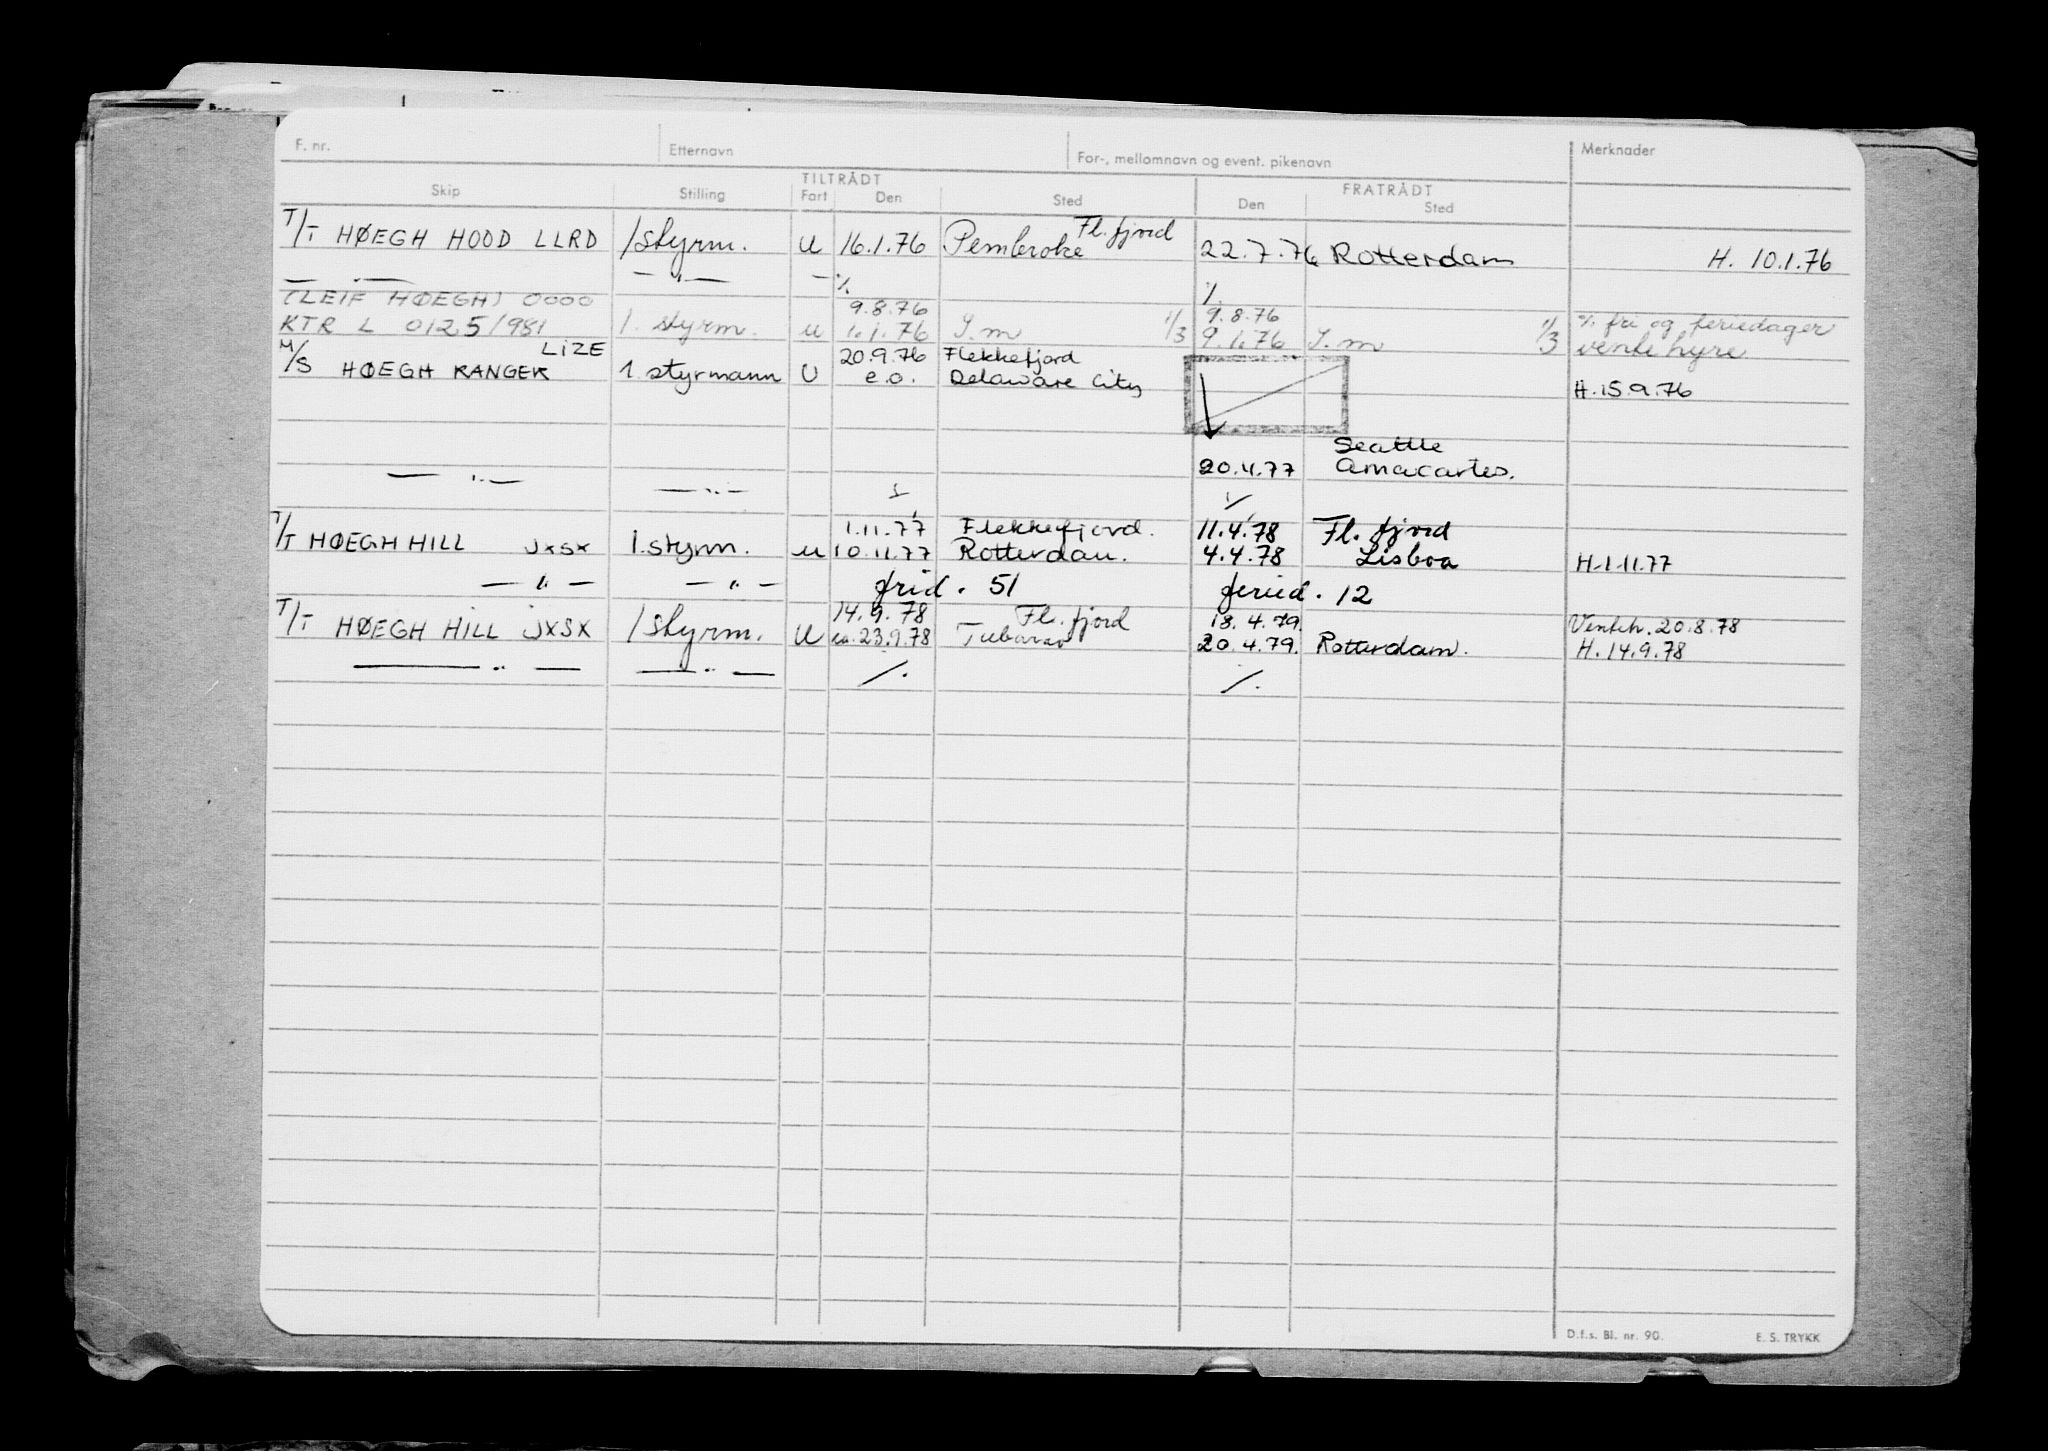 F. nr. Etternavn For-, mellomnavn og event. pikenavn Merknader
TILTRÅDT FRATRÅDT
Skip Stilling Fart Den Sted Den Sted
T/T HØEGH HOOD LLRD 1styrm. U 16.1.76 Pembroke Fl.fjord 22.7.76 Rotterdam H. 10.1.76
— " — — " — — ٪ ٪
(LEIF HØEGH) 0000 9.8.76 9.8.76
KTR L 0125/981 1. styrm. u 1.1.76 S.m 1/3 9.1.76 S.m 1/3 % fri og feriedager
ventehyre
M/S HØEGH RANGER LIZE 1. styrmann U 20.9.76 Flekkefjord
e.o. Delaware City H.15.9.76
Seattle
— " — — " — 20.4.77 Anacortes.
1.11.77 Flekkefjord. 11.4.78 Fl. fjord
T/T HØEGH HILL JXSX 1.styrm. u 10.11.77 Rotterdam. 4.4.78 Lisboa H.1.11.77
— " — — " — frid. 51 feried. 12
14.9.78 Fl. fjord 18.4.79. Venteh. 20.8.78
T/T HØEGH HILL JXSX 1styrm. U ca.23.9.78 Tubarao 20.4.79. Rotterdam. H. 14.9.78
— " — — " — ٪ ٪
D.f.s. Bl. nr. 90. E. S. TRYKK